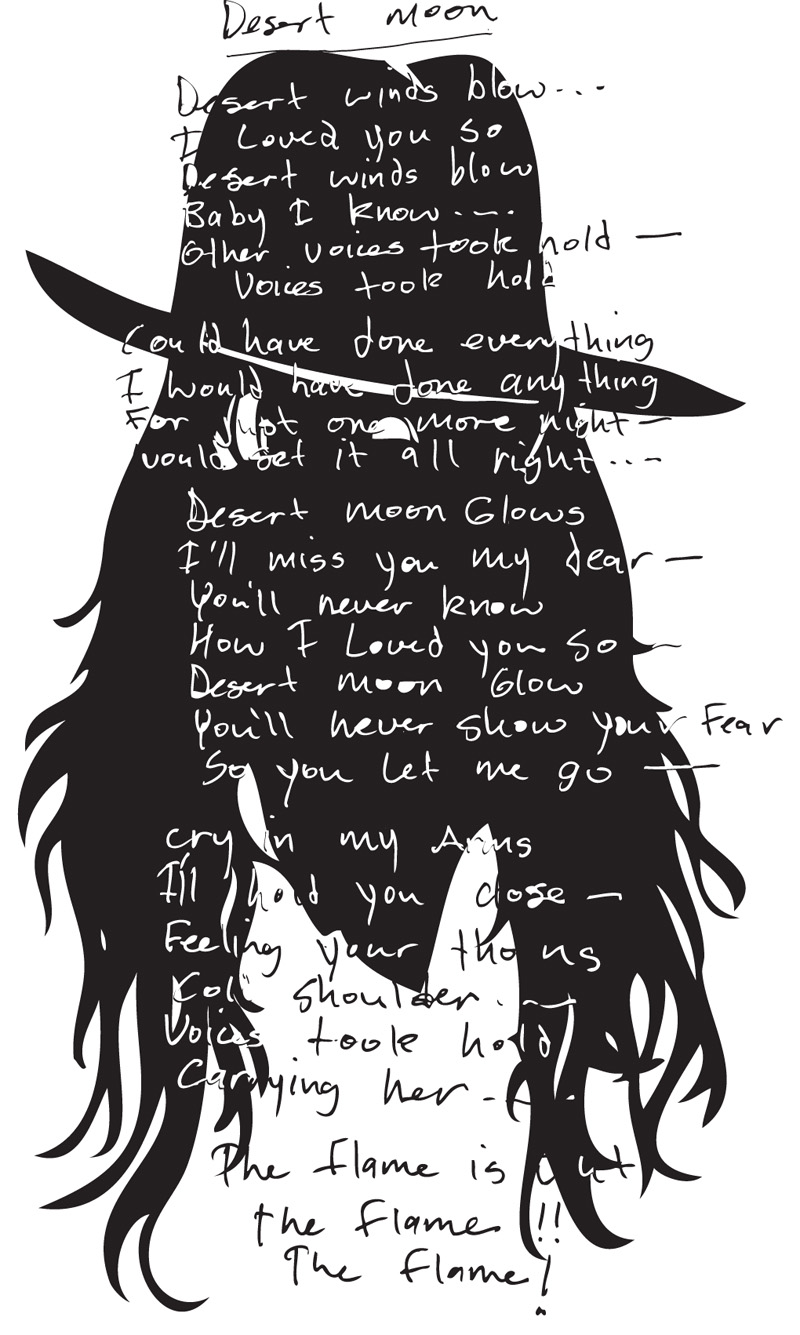 Desert moon
Desert winds blow...
I Loved you so
Desert winds blow
Baby I know....
Other voices took hold —
Voices took hold
Could have done everything
I would have done anything
For just one more night —
would set it all right...-
Desert moon Glows
I'll miss you my dear —
You'll never know
How I Loved you so —
Desert moon Glow
You'll never show your Fear
So you let me go —
cry in my Arms
I'll hold you close —
Feeling your thorns
Cold shoulder. —
Voices took hold
Carrying her - - -
The flame is out
the flame !!
The flame!